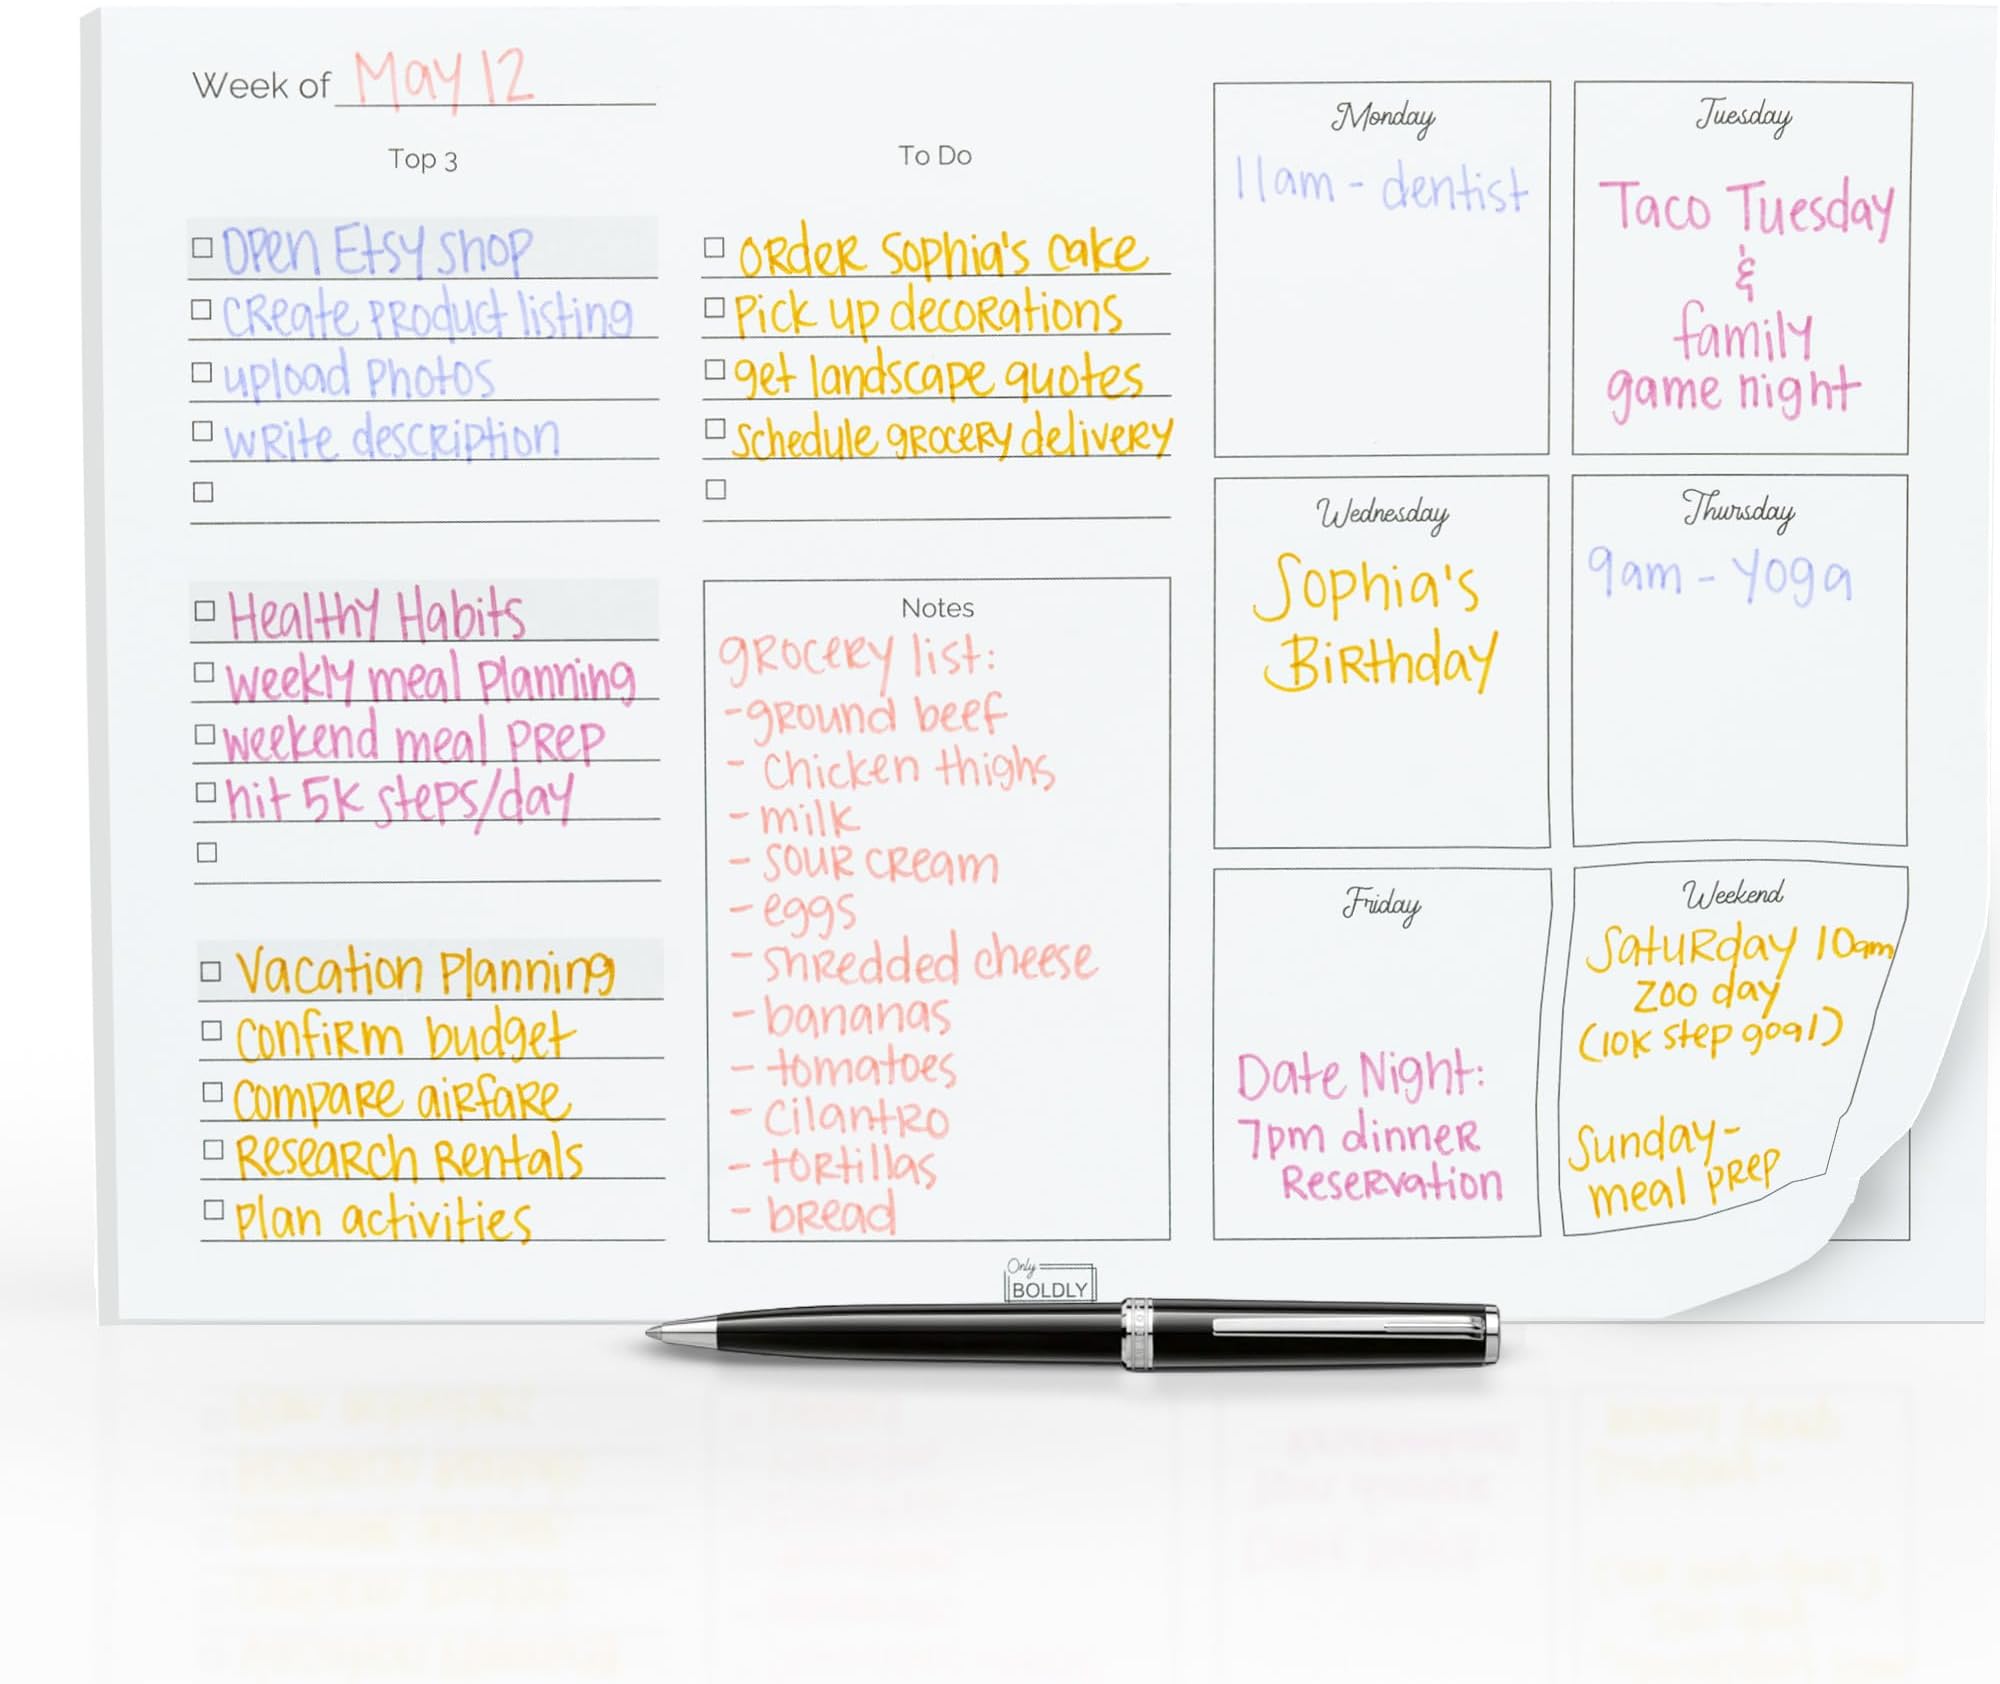 Week of May 12
Top 3
Open Etsy shop
create product listing
upload photos
write description
Healthy Habits
weekly meal planning
weekend meal prep
hit 5k steps/day
Vacation Planning
confirm budget
compare airfare
Research Rentals
plan activities
To Do
order Sophia's cake
pick up decorations
get landscape quotes
schedule grocery delivery
Notes
grocery list:
- ground beef
- chicken thighs
- milk
- sour cream
- eggs
- shredded cheese
- bananas
- tomatoes
- cilantro
- tortillas
- bread
Monday
11am - dentist
Tuesday
Taco Tuesday
&
family
game night
Wednesday
Sophia's
Birthday
Thursday
9am - yoga
Friday
Date Night:
7pm dinner
Reservation
Weekend
Saturday 10am
zoo day
(10k step goal)
Sunday-
meal prep
Only
BOLDLY